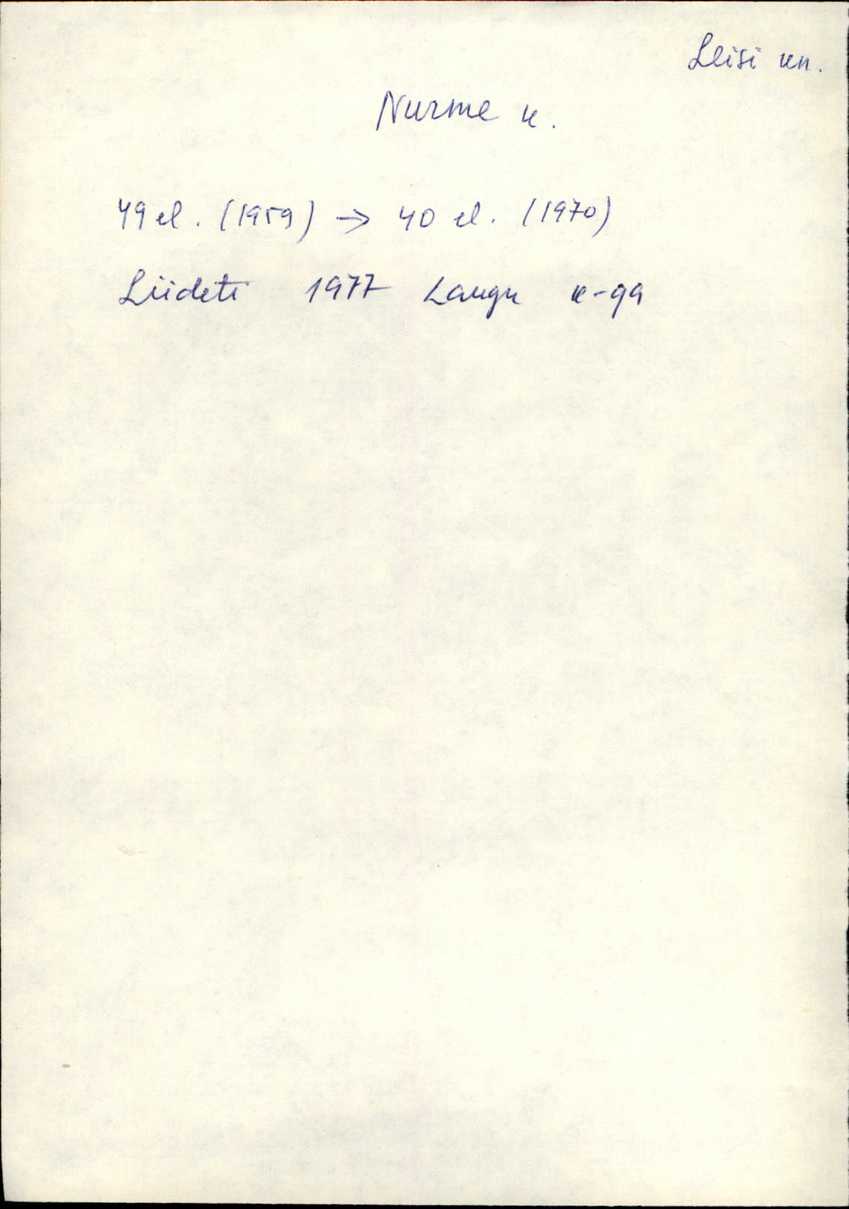 Leisi kn.
Nurme k.
49 el. (1959) → 40 el. (1970)
Liideti 1977 Laugu k-ga